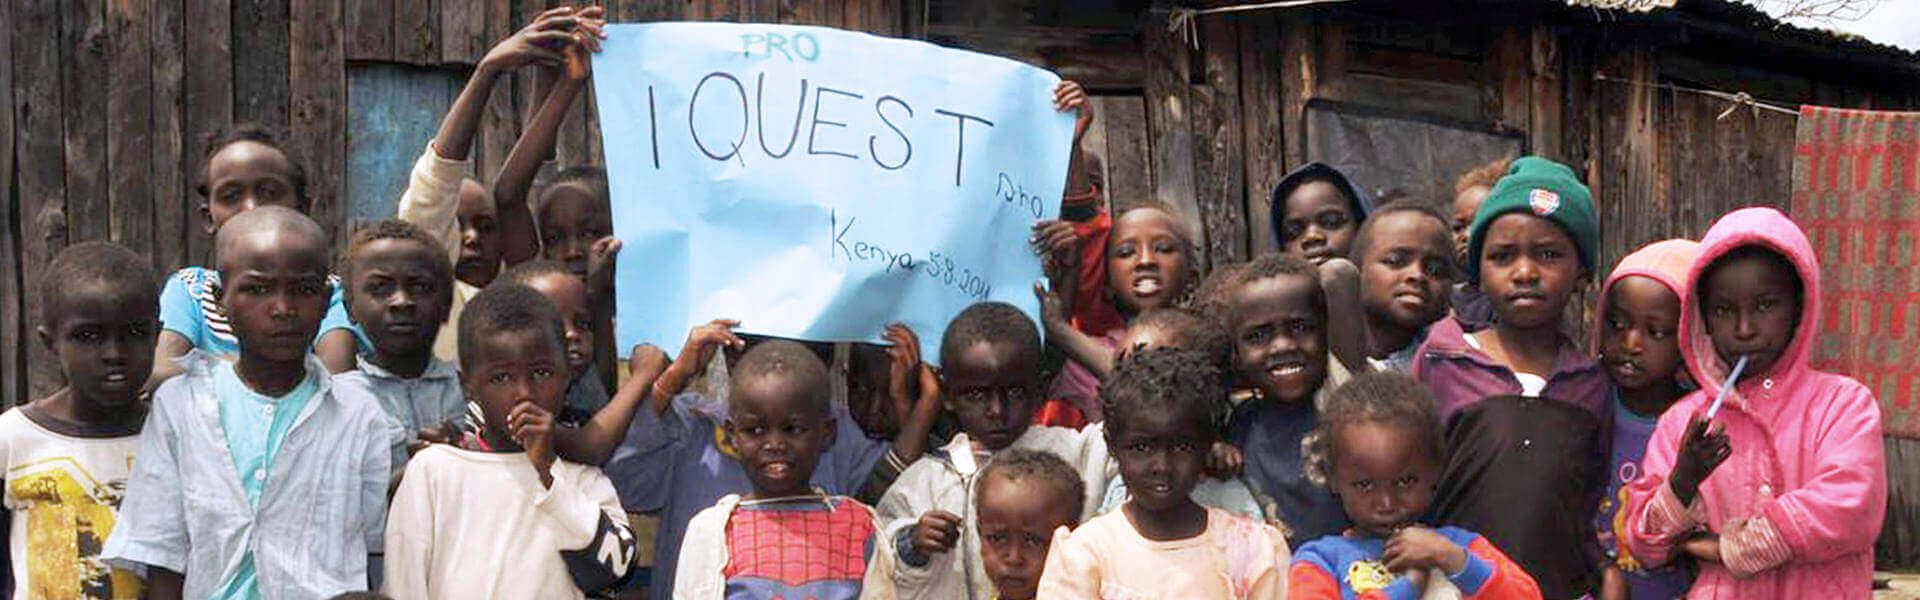 PRO
IQUEST
Dho
Kenya 5.8.2011
N